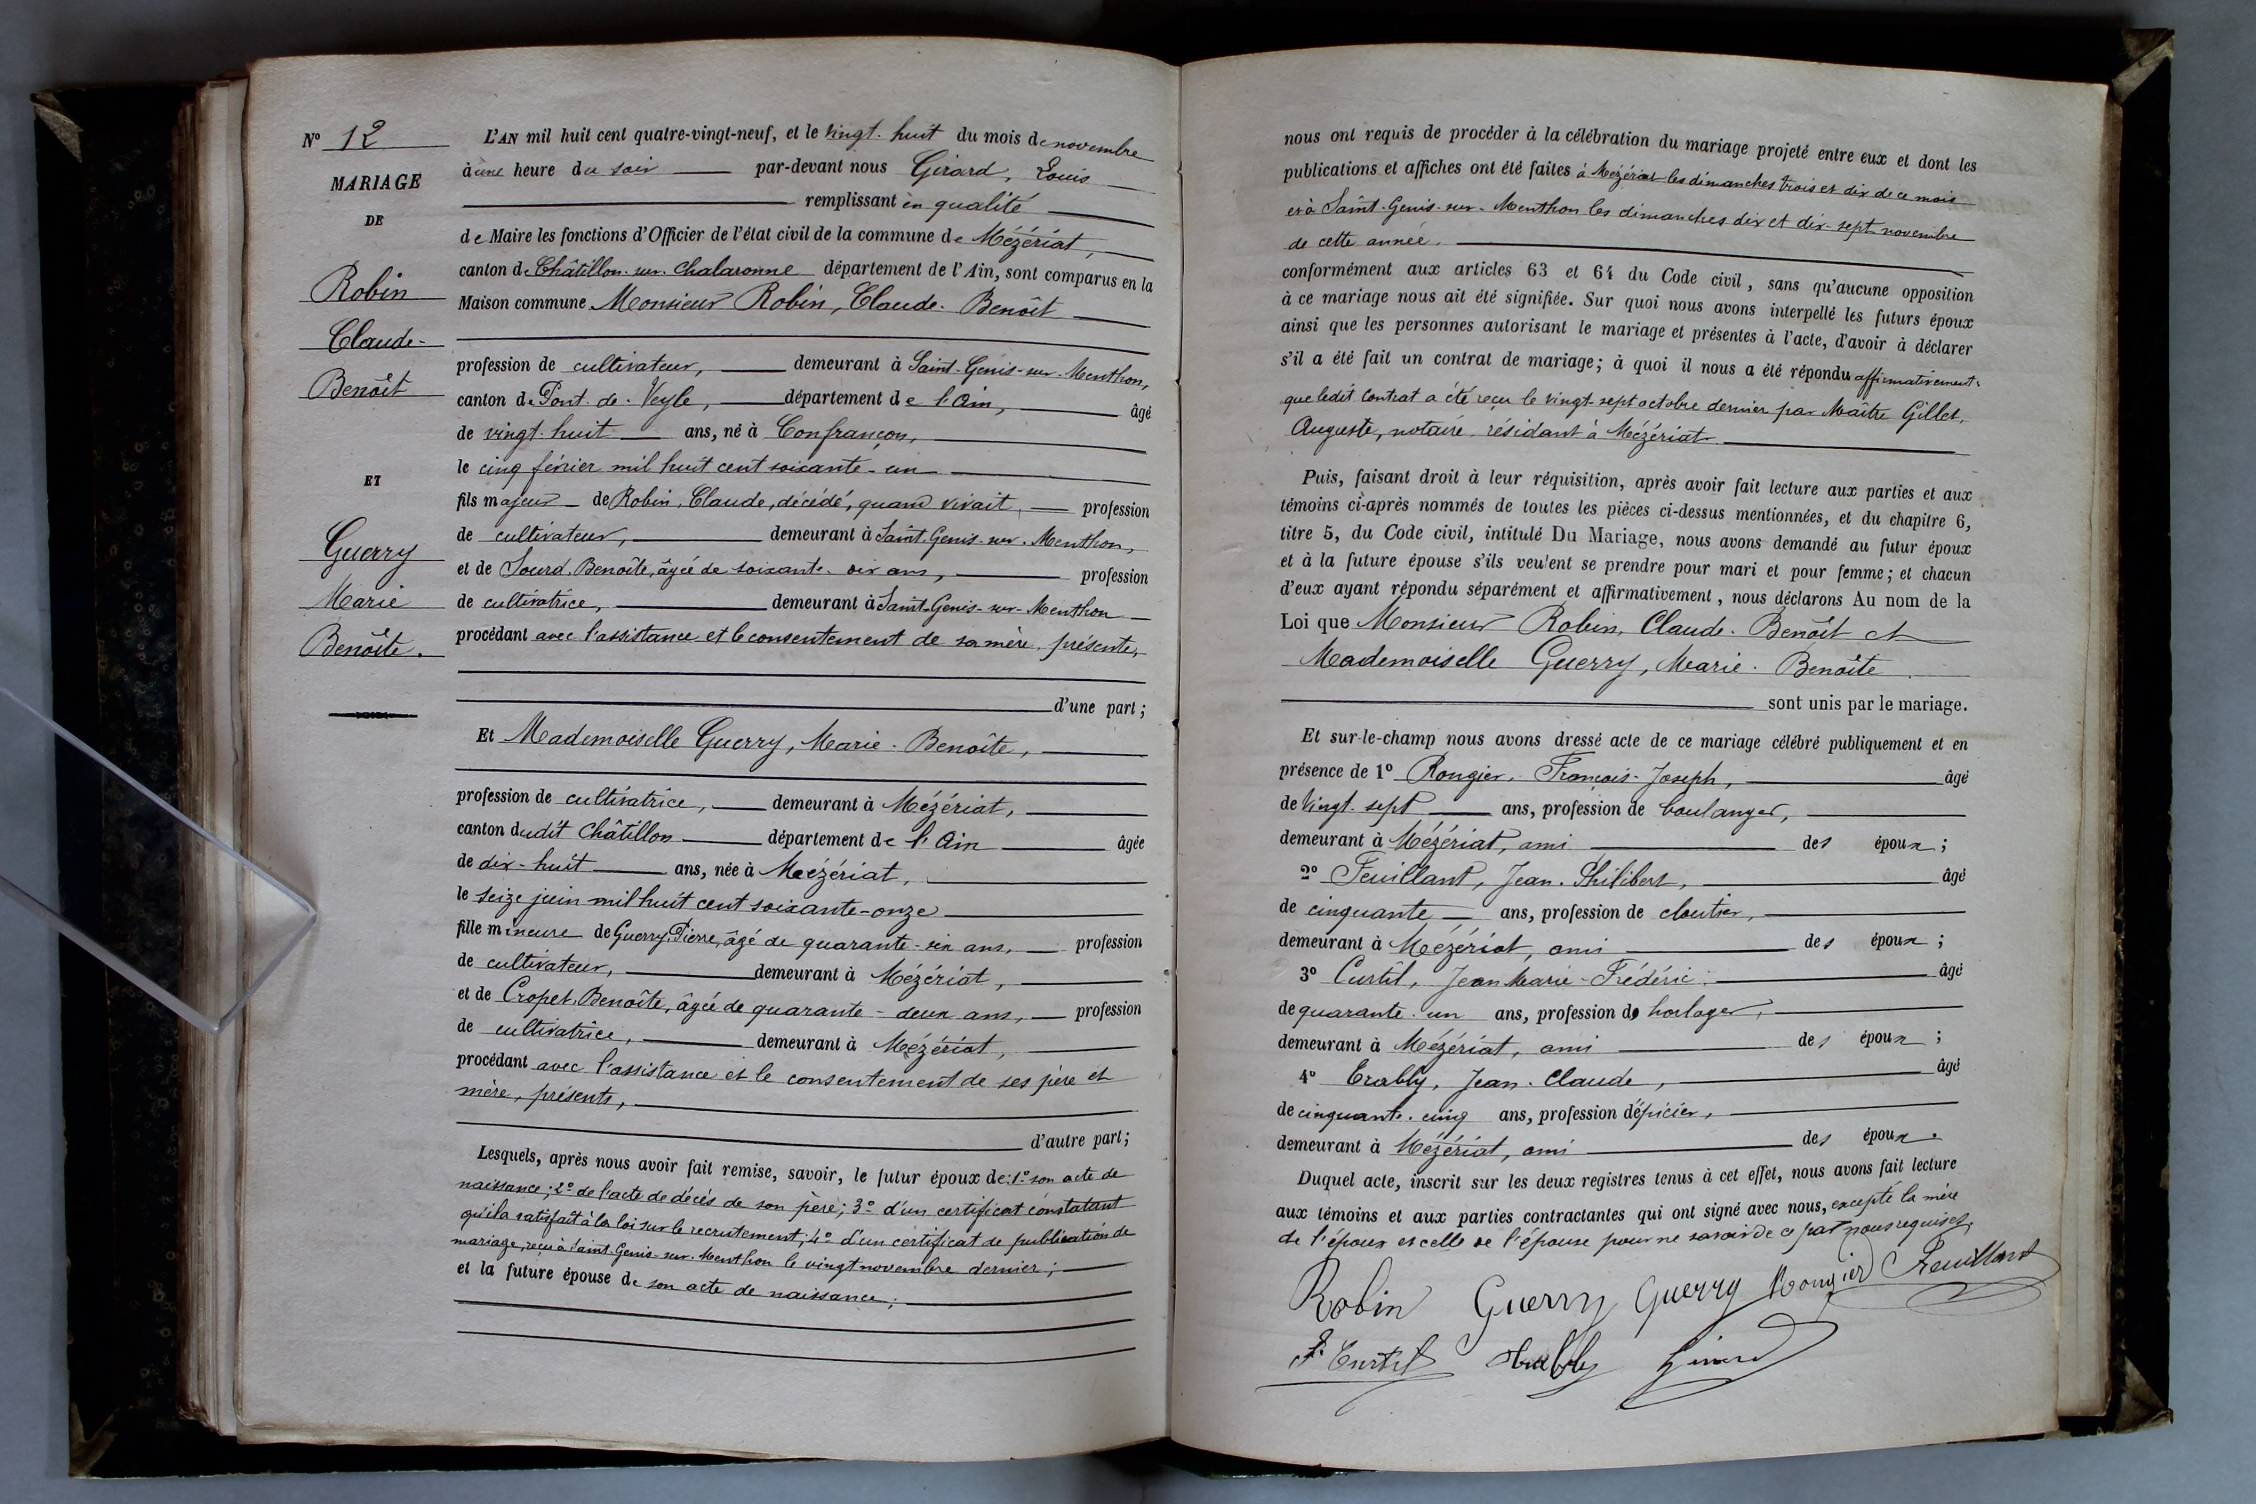 N° 12
MARIAGE
DE
Robin
Claude-
Benoît
ET
Guerry
Marie
Benoîte.
L'AN mil huit cent quatre-vingt-neuf, et le vingt-huit du mois de novembre
à une heure du soir par-devant nous Girard, Louis
remplissant en qualité
de Maire les fonctions d'Officier de l'état civil de la commune de Mézériat,
canton de Châtillon-sur-Chalaronne département de l'Ain, sont comparus en la
Maison commune Monsieur Robin, Claude-Benoît
profession de cultivateur, demeurant à Saint-Genis-sur-Menthon,
canton de Pont-de-Veyle, département de l'Ain, âgé
de vingt-huit ans, né à Confrançon,
le cinq février mil huit cent soixante-un
fils majeur de Robin, Claude, décédé, quand vivait, profession
de cultivateur, demeurant à Saint-Genis-sur-Menthon,
et de Sourd, Benoîte, âgée de soixante-six ans, profession
de cultivatrice, demeurant à Saint-Genis-sur-Menthon
procédant avec l'assistance et le consentement de sa mère, présente,
d'une part;
Et Mademoiselle Guerry, Marie-Benoîte,
profession de cultivatrice, demeurant à Mézériat,
canton dudit Châtillon département de l'Ain âgée
de dix-huit ans, née à Mézériat,
le seize juin mil huit cent soixante-onze
fille mineure de Guerry, Pierre, âgé de quarante-six ans, profession
de cultivateur, demeurant à Mézériat,
et de Cropet, Benoîte, âgée de quarante-deux ans, profession
de cultivatrice, demeurant à Mézériat,
procédant avec l'assistance et le consentement de ses père et
mère, présents,
d'autre part;
Lesquels, après nous avoir fait remise, savoir, le futur époux de: 1° son acte de
naissance; 2° de l'acte de décès de son père; 3° d'un certificat constatant
qu'il a satisfait à la loi sur le recrutement; 4° d'un certificat de publication de
mariage, reçu à Saint-Genis-sur-Menthon le vingt novembre dernier;
et la future épouse de son acte de naissance;
nous ont requis de procéder à la célébration du mariage projeté entre eux et dont les
publications et affiches ont été faites à Mézériat les dimanches trois et dix de ce mois
et à Saint-Genis-sur-Menthon les dimanches dix et dix-sept novembre
de cette année.
conformément aux articles 63 et 64 du Code civil, sans qu'aucune opposition
à ce mariage nous ait été signifiée. Sur quoi nous avons interpellé les futurs époux
ainsi que les personnes autorisant le mariage et présentes à l'acte, d'avoir à déclarer
s'il a été fait un contrat de mariage; à quoi il nous a été répondu affirmativement
que ledit contrat a été reçu le vingt-sept octobre dernier par Maître Gillet,
Auguste, notaire résidant à Mézériat.
Puis, faisant droit à leur réquisition, après avoir fait lecture aux parties et aux
témoins ci-après nommés de toutes les pièces ci-dessus mentionnées, et du chapitre 6,
titre 5, du Code civil, intitulé Du Mariage, nous avons demandé au futur époux
et à la future épouse s'ils veulent se prendre pour mari et pour femme; et chacun
d'eux ayant répondu séparément et affirmativement, nous déclarons Au nom de la
Loi que Monsieur Robin, Claude-Benoît et
Mademoiselle Guerry, Marie-Benoîte
sont unis par le mariage.
Et sur-le-champ nous avons dressé acte de ce mariage célébré publiquement et en
présence de 1° Rougier, François-Joseph, âgé
de vingt-sept ans, profession de boulanger,
demeurant à Mézériat, ami des époux;
2° Feuillant, Jean-Philibert, âgé
de cinquante ans, profession de cloutier,
demeurant à Mézériat, ami des époux;
3° Curtil, Jean Marie-Frédéric. âgé
de quarante-un ans, profession de horloger,
demeurant à Mézériat, ami des époux;
4° Trably, Jean-Claude, âgé
de cinquante-cinq ans, profession d'épicier,
demeurant à Mézériat, ami des époux.
Duquel acte, inscrit sur les deux registres tenus à cet effet, nous avons fait lecture
aux témoins et aux parties contractantes qui ont signé avec nous, excepté la mère
de l'époux et celle de l'épouse pour ne savoir de ce par nous requises,
Robin Guerry Guerry Rougier Feuillant
F. Curtil Trably Girard